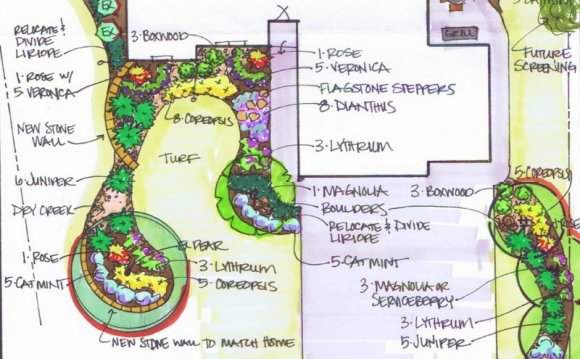 EX
EX
RELOCATE &
DIVIDE
LIRIOPE
3·BOXWOOD
1·ROSE W/
5·VERONICA
NEW STONE
WALL
8·COREOPSIS
TURF
6·JUNIPER
DRY CREEK
1·ROSE
5·CATMINT
EX. PEAR
3·LYTHRUM
5·COREOPSIS
NEW STONE WALL TO MATCH HOME
1·ROSE
5·VERONICA
FLAGSTONE STEPPERS
8·DIANTHUS
3·LYTHRUM
1·MAGNOLIA
BOULDERS
RELOCATE & DIVIDE
LIRIOPE
5·CATMINT
GRILL
FUTURE
SCREENING
3·BOXWOOD
5·COREOPSIS
3·MAGNOLIA OR
SERVICEBERRY
3·LYTHRUM
5·JUNIPER